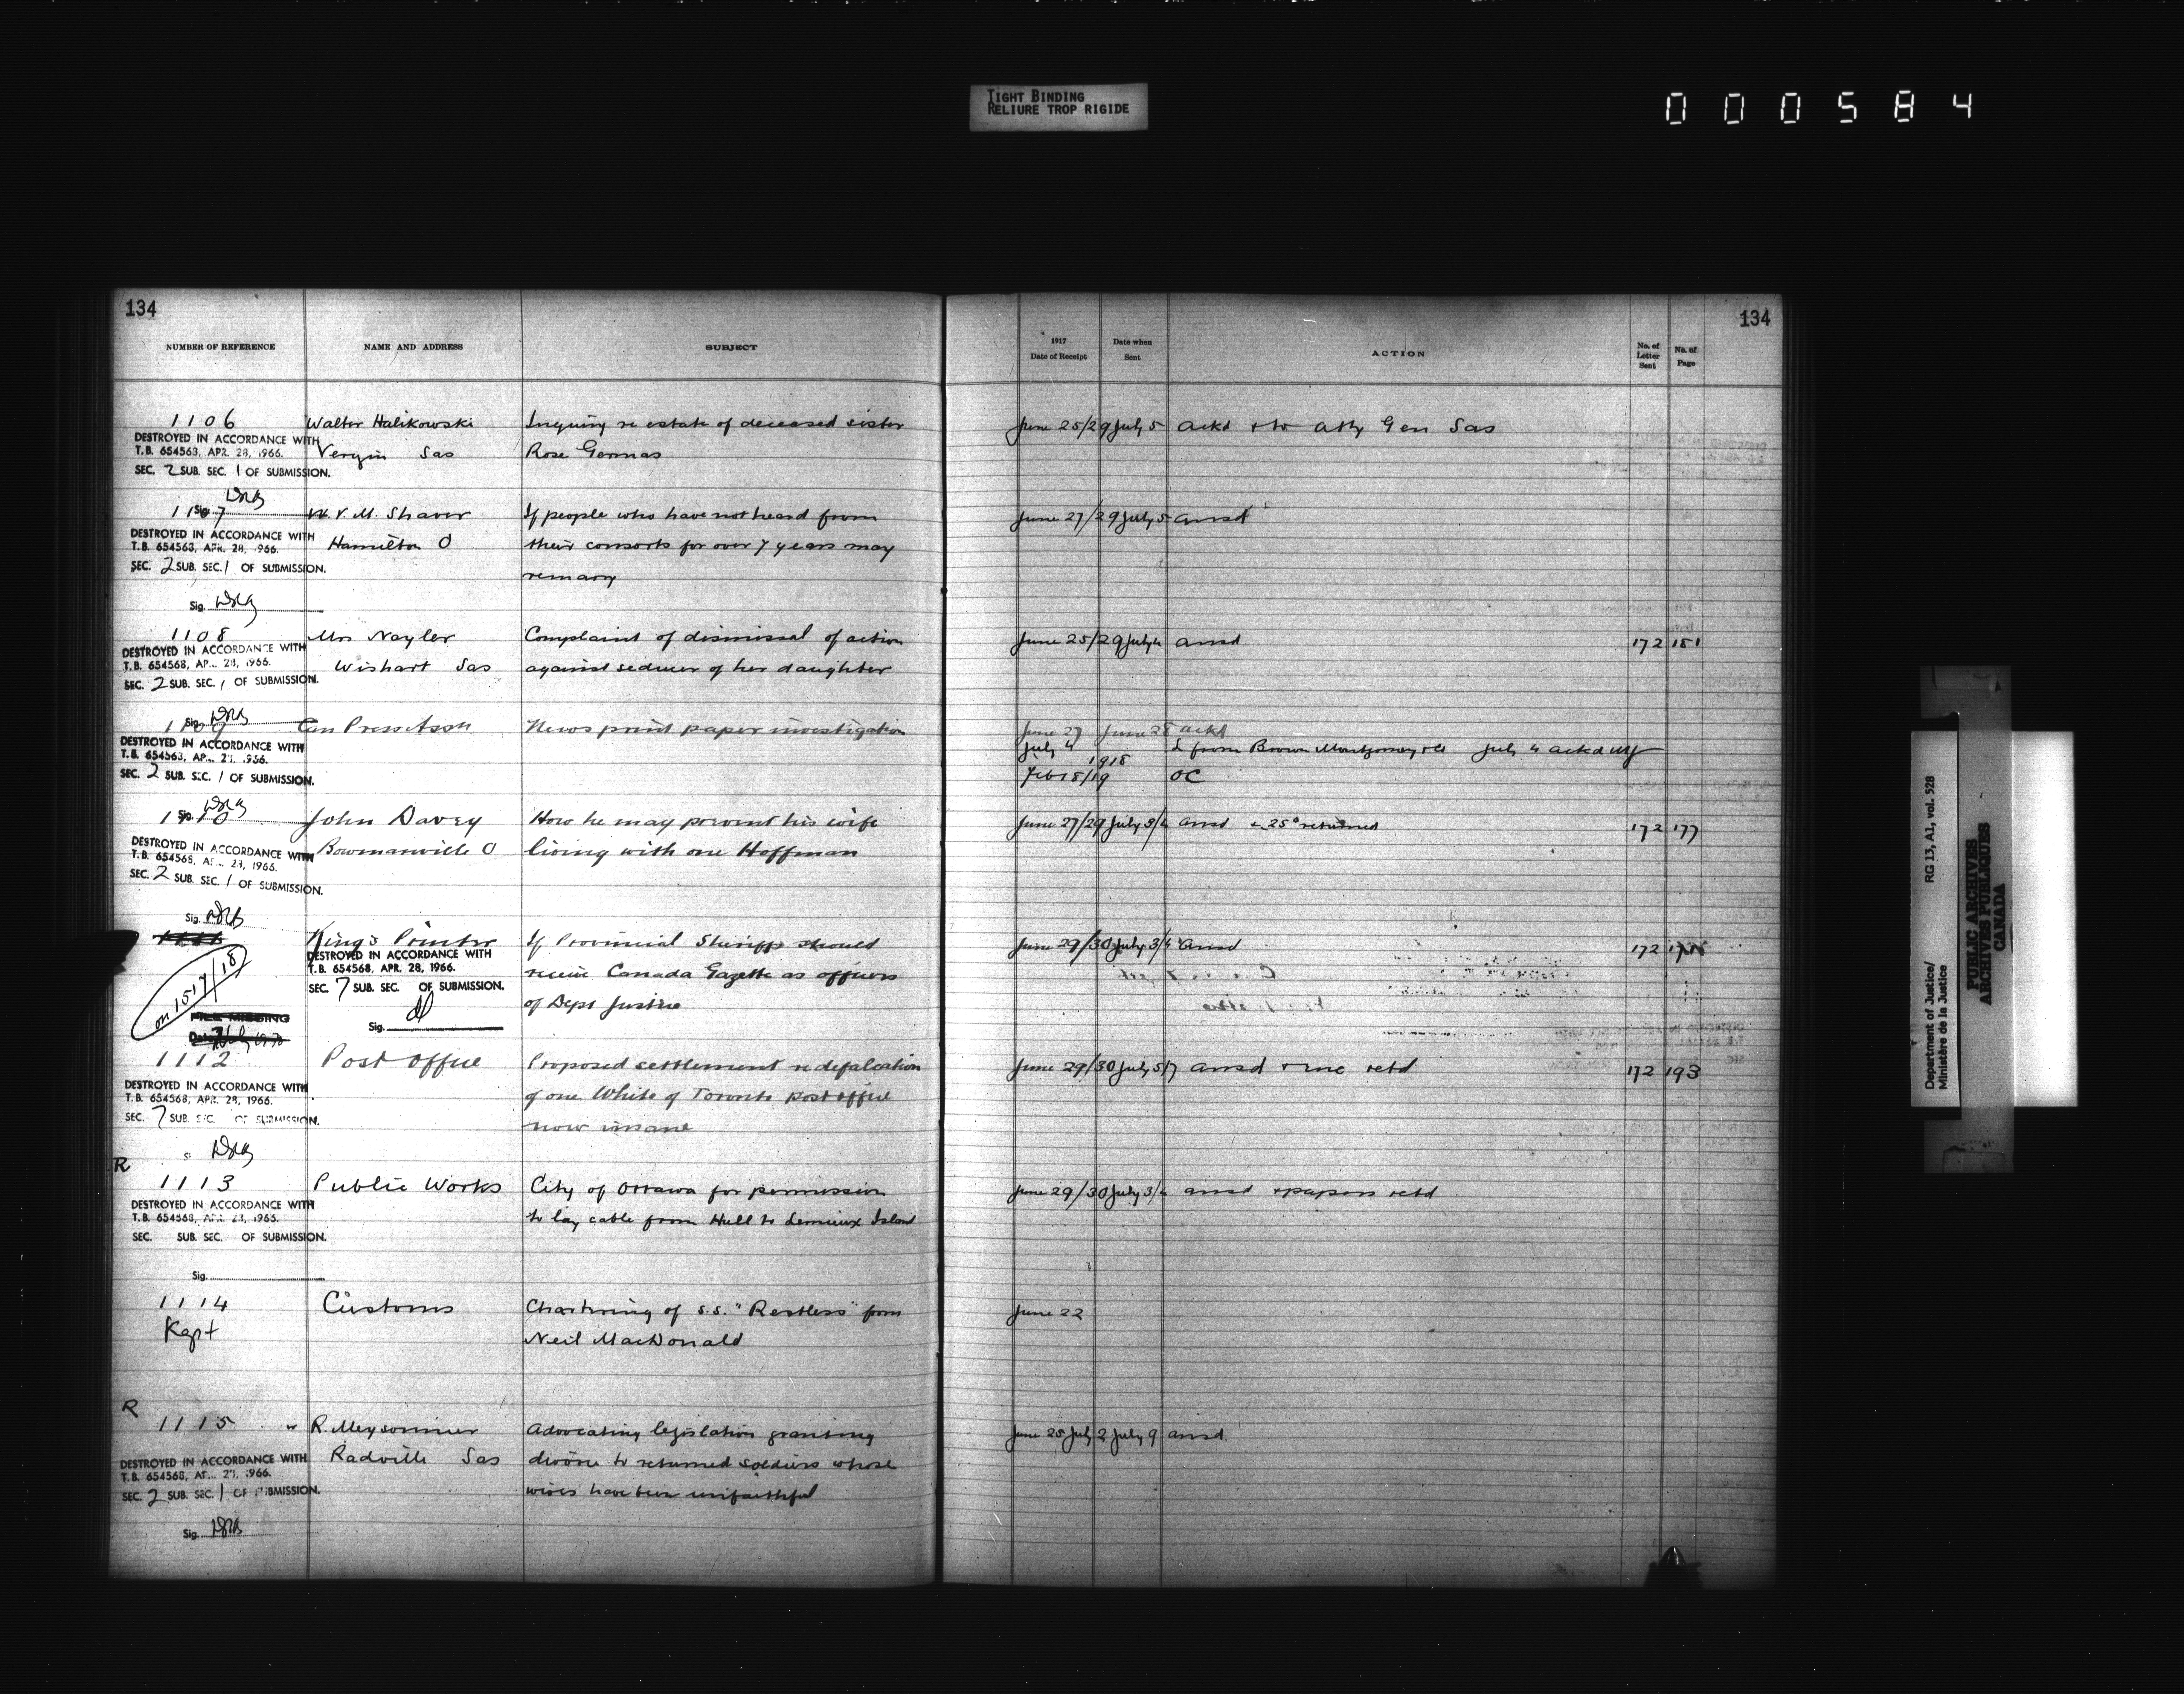 TIGHT BINDING
RELIURE TROP RIGIDE
000584
134
134
NUMBER OF REFERENCE NAME AND ADDRESS SUBJECT
1917 Date of Receipt Date when Sent ACTION No. of Letter Sent No. of Page
1106 Walter Halikowski Inquiry re estate of deceased sister June 25/29 July 5 ackd + to Atty Gen Sas
DESTROYED IN ACCORDANCE WITH
T.B. 654563, APR. 28, 1966. Sas Rose
SEC. 2 SUB. SEC. 1 OF SUBMISSION.
Sig.
1107 W. V. M. Shaver If people who have not heard from June 27/29 July 5 ansd
DESTROYED IN ACCORDANCE WITH
T.B. 654563, APR. 28, 1966. Hamilton O their consorts for over 7 years may
SEC. 2 SUB. SEC. 1 OF SUBMISSION.
remarry
Sig.
1108 Mrs Nayler Complaint of dismissal of action June 25/29 July 4 ansd 172 181
DESTROYED IN ACCORDANCE WITH
T.B. 654568, APR. 28, 1966. Wishart Sas against seducer of her daughter
SEC. 2 SUB. SEC. 1 OF SUBMISSION.
Sig.
1109 Can Press Assn News print paper investigation June 27 June 28 ackd
DESTROYED IN ACCORDANCE WITH July 4 L from Brown Montgomery + Co July 4 ackd
T.B. 654563, APR. 28, 1966. 1918
SEC. 2 SUB. SEC. 1 OF SUBMISSION. Feb 18/19 OC
Sig.
1110 John Davey How he may prevent his wife June 27/29 July 3/4 ansd + 25¢ returned 172 177
DESTROYED IN ACCORDANCE WITH
T.B. 654568, APR. 28, 1966. Bowmanville O living with one Hoffman
SEC. 2 SUB. SEC. 1 OF SUBMISSION.
Sig.
1111 King's Printer If Provincial Sheriffs should June 29/30 July 3/4 ansd 172
DESTROYED IN ACCORDANCE WITH
T.B. 654568, APR. 28, 1966. receive Canada Gazette as officers
SEC. 7 SUB. SEC. OF SUBMISSION.
on 1517/18 of Dept Justice
Sig.
FILE MISSING
Date
1112 Post Office Proposed settlement re defalcation June 29/30 July 5/7 ansd + inc retd 172 193
DESTROYED IN ACCORDANCE WITH
T.B. 654568, APR. 28, 1966. of one White of Toronto post office
SEC. 7 SUB. SEC. OF SUBMISSION.
now insane
R
1113 Public Works City of Ottawa for permission June 29/30 July 3/4 ansd + papers retd
DESTROYED IN ACCORDANCE WITH
T.B. 654568, APR. 28, 1966. to lay cable from Hull to Lemieux Island
SEC. SUB. SEC. OF SUBMISSION.
Sig.
1114 Customs Chartering of S.S. "Restless" from June 22
Kept Neil MacDonald
R
1115 R. Meysonnier Advocating legislation granting June 25 July 2 July 9 ansd
DESTROYED IN ACCORDANCE WITH Radville Sas divorce to returned soldiers whose
T.B. 654568, APR. 28, 1966.
SEC. 2 SUB. SEC. 1 OF SUBMISSION. wives have been unfaithful
Sig.
Department of Justice/ RG 13, A1, vol. 528
Ministère de la Justice
PUBLIC ARCHIVES
ARCHIVES PUBLIQUES
CANADA